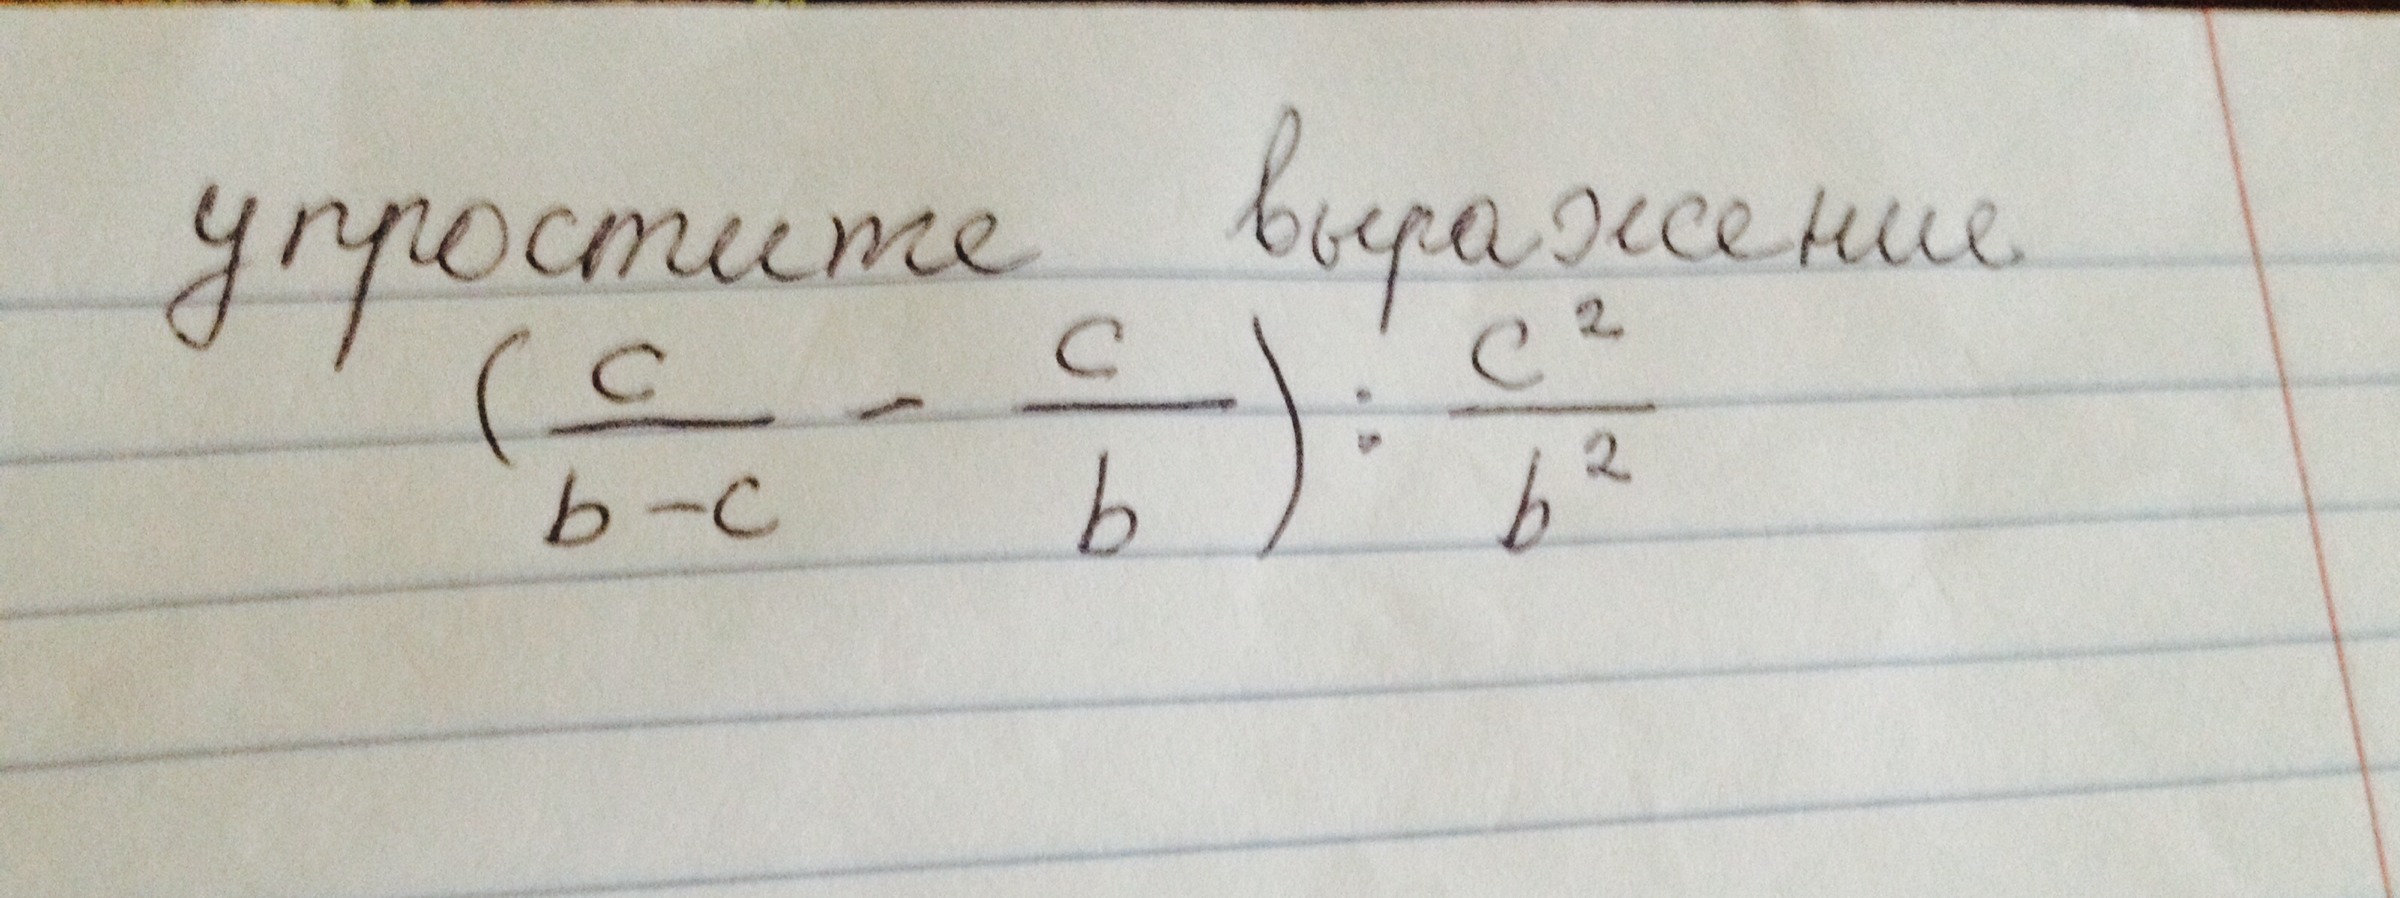 упростите выражение
(c/(b-c) - c/b) : c²/b²